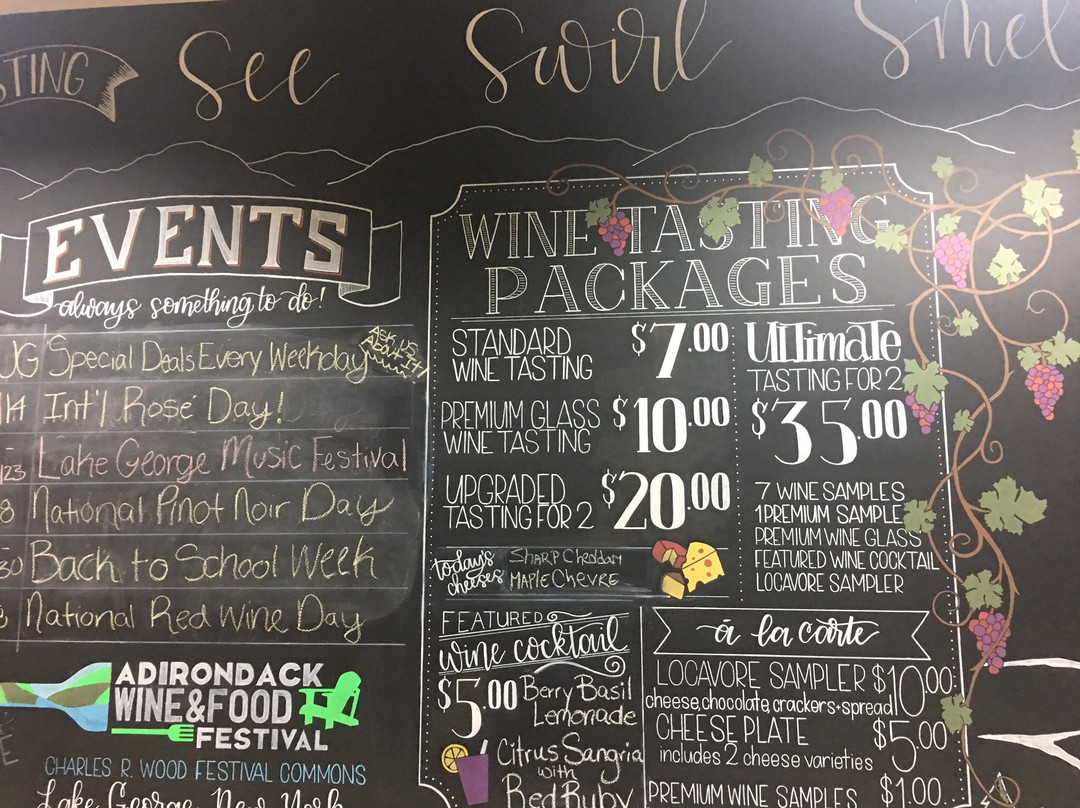 TING
See
Swirl
Smel
EVENTS
always something to do!
UG Special Deals Every Weekday
ASK US ABOUT IT!
14 Int'l Rosé Day!
23 Lake George Music Festival
8 National Pinot Noir Day
30 Back to School Week
National Red Wine Day
ADIRONDACK
WINE&FOOD
FESTIVAL
CHARLES R. WOOD FESTIVAL COMMONS
Lake George, New York
WINE TASTING
PACKAGES
STANDARD
WINE TASTING
$7.00
PREMIUM GLASS
WINE TASTING
$10.00
UPGRADED
TASTING FOR 2
$20.00
Ultimate
TASTING FOR 2
$35.00
7 WINE SAMPLES
1 PREMIUM SAMPLE
PREMIUM WINE GLASS
FEATURED WINE COCKTAIL
LOCAVORE SAMPLER
today's
cheeses
SHARP CHEDDAR
MAPLE CHEVRE
FEATURED
wine cocktail
$5.00
Berry Basil
Lemonade
Citrus Sangria
with
Red Ruby
á la carte
LOCAVORE SAMPLER $10.00
cheese, chocolate, crackers + spread
CHEESE PLATE $5.00
includes 2 cheese varieties
PREMIUM WINE SAMPLES $1.00